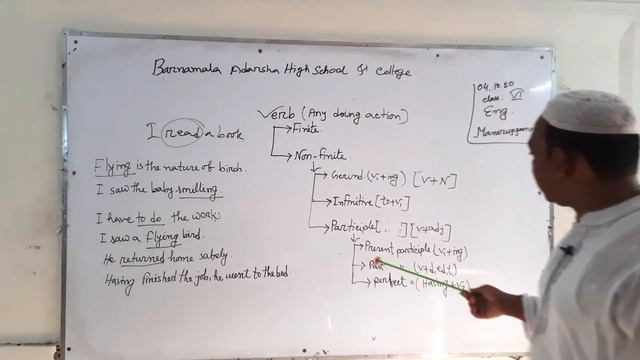 Barnamala Adarsha High School & College
04.10.20
class: VI
Eng.
Verb (Any doing action)
I read a book
Finite
Non-finite
Flying is the nature of birds.
I saw the baby smelling.
I have to do the work
I saw a flying bird.
He returned home sabely.
Having finished the job, he went to the bed.
Gerund (V1+ing) [V+N]
Infinitive [to+V1]
Participle [ ] [V+adj]
Present participle (V1+ing)
Past " (V+d, ed, t)
Perfect " (Having +V3)